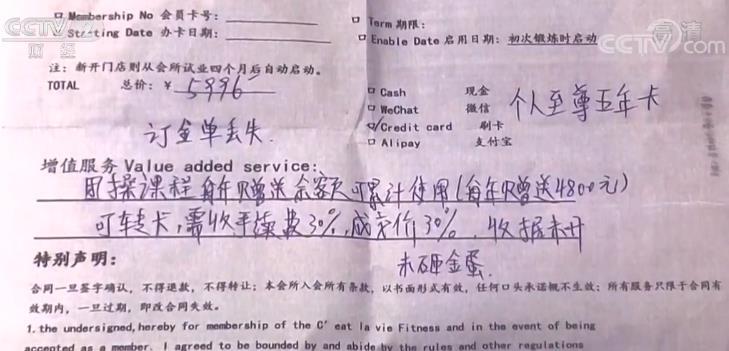 CCTV 2
财经
CCTV.com
高清
□ Membership No 会员卡号:
□ Starting Date 办卡日期:
□ Term 期限:
□ Enable Date 启用日期: 初次锻炼时启动
注: 新开门店则从会所试业四个月后自动启动。
TOTAL 总价: ¥ 5996
□ Cash 现金
□ WeChat 微信
☑ Credit card 刷卡
□ Alipay 支付宝
个人至尊五年卡
订金单丢失.
增值服务 Value added service:
团操课程每年赠送余额可累计使用(每年赠送4800元)
可转卡,需收手续费30%,成交价30%. 收据未开
未砸金蛋.
特别声明:
合同一旦签字确认, 不得退款, 不得转让; 本会所入会所有条款, 以书面形式有效, 任何口头承诺概不生效; 所有服务只限于合同有
效期内, 一旦过期, 即改合同失效。
1. the undersigned, hereby for membership of the C' eat la vie Fitness and in the event of being
accepted as a member. I agreed to be bounded by and abide by the rules and other regulations